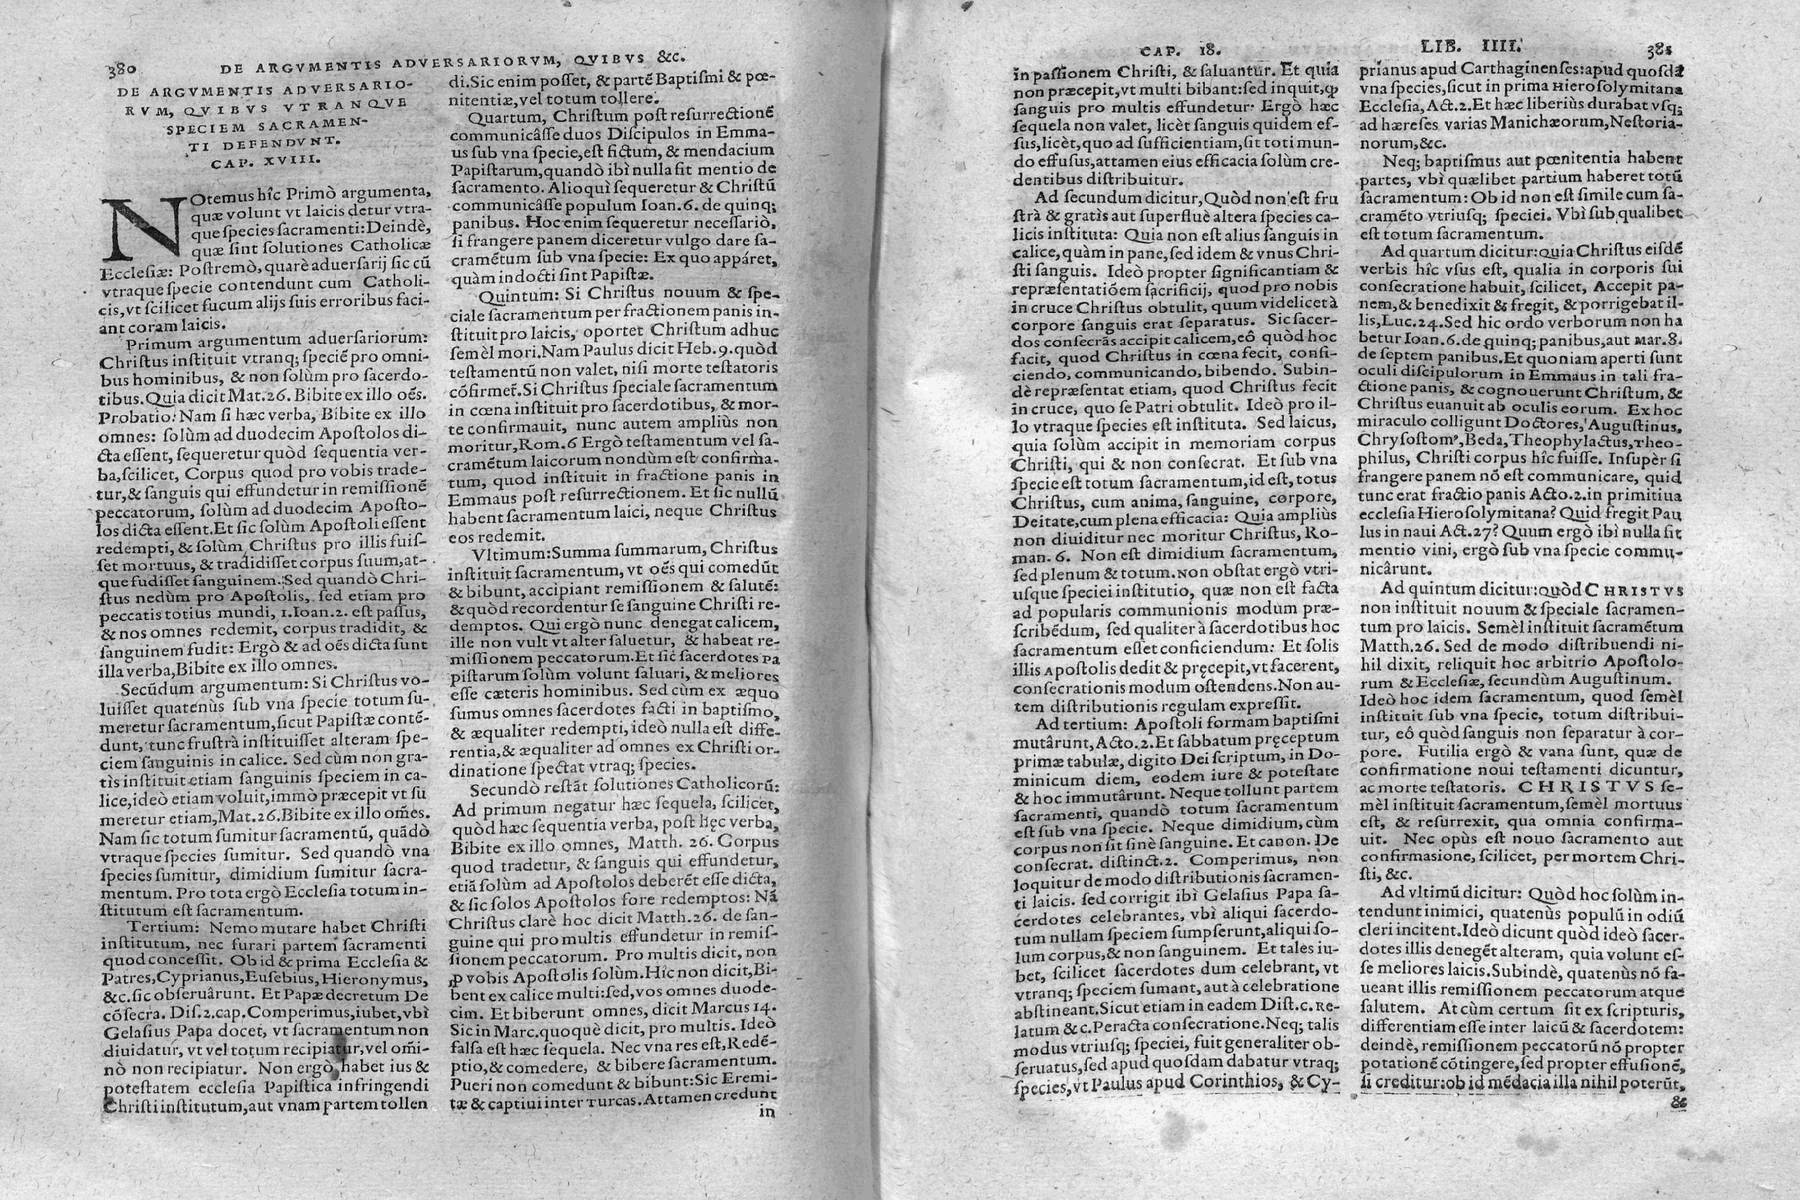 380
DE ARGVMENTIS ADVERSARIORVM, QVIBVS &c.
DE ARGVMENTIS ADVERSARIO-
RVM, QVIBVS VTRANQVE
SPECIEM SACRAMEN-
TI DEFENDVNT.
CAP. XVIII.
NOtemus hîc Primò argumenta,
quæ volunt vt laicis detur vtra-
que species sacramenti: Deindè,
quæ sint solutiones Catholicæ
Ecclesiæ: Postremò, quarè aduersarij sic cū
vtraque specie contendunt cum Catholi-
cis, vt scilicet fucum alijs suis erroribus faci-
ant coram laicis.
Primum argumentum aduersariorum:
Christus instituit vtranq; speciē pro omni-
bus hominibus, & non solùm pro sacerdo-
tibus. Quia dicit Mat. 26. Bibite ex illo oēs.
Probatio: Nam si hæc verba, Bibite ex illo
omnes: solùm ad duodecim Apostolos di-
cta essent, sequeretur quòd sequentia ver-
ba, scilicet, Corpus quod pro vobis trade-
tur, & sanguis qui effundetur in remissionē
peccatorum, solùm ad duodecim Aposto-
los dicta essent. Et sic solùm Apostoli essent
redempti, & solùm Christus pro illis fuis-
set mortuus, & tradidisset corpus suum, at-
que fudisset sanguinem. Sed quandò Chri-
stus nedùm pro Apostolis, sed etiam pro
peccatis totius mundi, 1. Ioan. 2. est passus,
& nos omnes redemit, corpus tradidit, &
sanguinem fudit: Ergò & ad oēs dicta sunt
illa verba, Bibite ex illo omnes.
Secūdum argumentum: Si Christus vo-
luisset quatenùs sub vna specie totum su-
meretur sacramentum, sicut Papistæ contē-
dunt, tunc frustrà instituisset alteram spe-
ciem sanguinis in calice. Sed cùm non gra-
tìs instituit etiam sanguinis speciem in ca-
lice, ideò etiam voluit, immò præcepit vt su
meretur etiam, Mat. 26. Bibite ex illo om̄es.
Nam sic totum sumitur sacramentū, quādò
vtraque species sumitur. Sed quandò vna
species sumitur, dimidium sumitur sacra-
mentum. Pro tota ergò Ecclesia totum in-
stitutum est sacramentum.
Tertium: Nemo mutare habet Christi
institutum, nec furari partem sacramenti
quod concessit. Ob id & prima Ecclesia &
Patres, Cyprianus, Eusebius, Hieronymus,
&c. sic obseruârunt. Et Papæ decretum De
cōsecra. Dis. 2. cap. Comperimus, iubet, vbì
Gelasius Papa docet, vt sacramentum non
diuidatur, vt vel totum recipiatur, vel om̄i-
nò non recipiatur. Non ergò habet ius &
potestatem ecclesia Papistica infringendi
Christi institutum, aut vnam partem tollen
di. Sic enim posset, & partē Baptismi & pœ-
nitentiæ, vel totum tollere.
Quartum, Christum post resurrectionē
communicâsse duos Discipulos in Emma-
us sub vna specie, est fictum, & mendacium
Papistarum, quandò ibì nulla sit mentio de
sacramento. Alioquì sequeretur & Christū
communicâsse populum Ioan. 6. de quinq;
panibus. Hoc enim sequeretur necessariò,
si frangere panem diceretur vulgo dare sa-
cramētum sub vna specie: Ex quo appáret,
quàm indocti sint Papistæ.
Quintum: Si Christus nouum & spe-
ciale sacramentum per fractionem panis in-
stituit pro laicis, oportet Christum adhuc
semèl mori. Nam Paulus dicit Heb. 9. quòd
testamentū non valet, nisi morte testatoris
cōfirmet̄. Si Christus speciale sacramentum
in cœna instituit pro sacerdotibus, & mor-
te confirmauit, nunc autem ampliùs non
moritur, Rom. 6 Ergò testamentum vel sa-
cramētum laicorum nondùm est confirma-
tum, quod instituit in fractione panis in
Emmaus post resurrectionem. Et sic nullū
habent sacramentum laici, neque Christus
eos redemit.
Vltimum: Summa summarum, Christus
instituit sacramentum, vt oēs qui comedūt
& bibunt, accipiant remissionem & salutē:
& quòd recordentur se sanguine Christi re-
demptos. Qui ergò nunc denegat calicem,
ille non vult vt alter saluetur, & habeat re-
missionem peccatorum. Et sic sacerdotes Pa
pistarum solùm volunt saluari, & meliores
esse cæteris hominibus. Sed cùm ex æquo
sumus omnes sacerdotes facti in baptismo,
& æqualiter redempti, ideò nulla est diffe-
rentia, & æqualiter ad omnes ex Christi or-
dinatione spectat vtraq; species.
Secundò restāt solutiones Catholicorū:
Ad primum negatur hæc sequela, scilicet,
quòd hæc sequentia verba, post hęc verba,
Bibite ex illo omnes, Matth. 26. Corpus
quod tradetur, & sanguis qui effundetur,
etiā solùm ad Apostolos deberēt esse dicta,
& sic solos Apostolos fore redemptos: Nā
Christus clarè hoc dicit Matth. 26. de san-
guine qui pro multis effundetur in remis-
sionem peccatorum. Pro multis dicit, non
ꝓ vobis Apostolis solùm. Hîc non dicit, Bi-
bent ex calice multi: sed, vos omnes duode-
cim. Et biberunt omnes, dicit Marcus 14.
Sic in Marc. quoquè dicit, pro multis. Ideò
falsa est hæc sequela. Nec vna res est, Redē-
ptio, & comedere, & bibere sacramentum.
Pueri non comedunt & bibunt: Sic Eremi-
tæ & captiui inter Turcas. Attamen credunt
in
CAP. 18.
LIB. IIII.
381
in passionem Christi, & saluantur. Et quia
non præcepit, vt multi bibant: sed inquit, ꝙ
sanguis pro multis effundetur: Ergò hæc
sequela non valet, licèt sanguis quidem ef-
fusus, licèt, quo ad sufficientiam, sit toti mun-
do effusus, attamen eius efficacia solùm cre-
dentibus distribuitur.
Ad secundum dicitur, Quòd non est fru
strà & gratìs aut superfluè altera species ca-
licis instituta: Quia non est alius sanguis in
calice, quàm in pane, sed idem & vnus Chri-
sti sanguis. Ideò propter significantiam &
repræsentatiōem sacrificij, quod pro nobis
in cruce Christus obtulit, quum videlicet à
corpore sanguis erat separatus. Sic sacer-
dos consecrās accipit calicem, eô quòd hoc
facit, quod Christus in cœna fecit, confi-
ciendo, communicando, bibendo. Subin-
dè repræsentat etiam, quod Christus fecit
in cruce, quo se Patri obtulit. Ideò pro il-
lo vtraque species est instituta. Sed laicus,
quia solùm accipit in memoriam corpus
Christi, qui & non consecrat. Et sub vna
specie est totum sacramentum, id est, totus
Christus, cum anima, sanguine, corpore,
Deitate, cum plena efficacia: Quia ampliùs
non diuiditur nec moritur Christus, Ro-
man. 6. Non est dimidium sacramentum,
sed plenum & totum. Non obstat ergò vtri-
usque speciei institutio, quæ non est facta
ad popularis communionis modum præ-
scribēdum, sed qualiter à sacerdotibus hoc
sacramentum esset conficiendum: Et solis
illis Apostolis dedit & pręcepit, vt facerent,
consecrationis modum ostendens. Non au-
tem distributionis regulam expressit.
Ad tertium: Apostoli formam baptismi
mutârunt, Acto. 2. Et sabbatum pręceptum
primæ tabulæ, digito Dei scriptum, in Do-
minicum diem, eodem iure & potestate
& hoc immutârunt. Neque tollunt partem
sacramenti, quandò totum sacramentum
est sub vna specie. Neque dimidium, cùm
corpus non sit sinè sanguine. Et canon. De
consecrat. distinct. 2. Comperimus, non
loquitur de modo distributionis sacramen-
ti laicis. sed corrigit ibì Gelasius Papa sa-
cerdotes celebrantes, vbì aliqui sacerdo-
tum nullam speciem sumpserunt, aliqui so-
lum corpus, & non sanguinem. Et tales iu-
bet, scilicet sacerdotes dum celebrant, vt
vtranq; speciem sumant, aut à celebratione
abstineant. Sicut etiam in eadem Dist. c. Re-
latum &c. Peracta consecratione. Neq; talis
modus vtriusq; speciei, fuit generaliter ob-
seruatus, sed apud quosdam dabatur vtraq;
species, vt Paulus apud Corinthios, & Cy-
prianus apud Carthaginenses: apud quosdā
vna species, sicut in prima Hierosolymitana
Ecclesia, Act. 2. Et hæc liberiùs durabat vsq;
ad hæreses varias Manichæorum, Nestoria-
norum, &c.
Neq; baptismus aut pœnitentia habent
partes, vbì quælibet partium haberet totū
sacramentum: Ob id non est simile cum sa-
cramēto vtriusq; speciei. Vbì sub qualibet
est totum sacramentum.
Ad quartum dicitur: quia Christus eisdē
verbis hîc vsus est, qualia in corporis sui
consecratione habuit, scilicet, Accepit pa-
nem, & benedixit & fregit, & porrigebat il-
lis, Luc. 24. Sed hic ordo verborum non ha
betur Ioan. 6. de quinq; panibus, aut Mar. 8.
de septem panibus. Et quoniam aperti sunt
oculi discipulorum in Emmaus in tali fra-
ctione panis, & cognouerunt Christum, &
Christus euanuit ab oculis eorum. Ex hoc
miraculo colligunt Doctores, Augustinus,
Chrysostomꝰ, Beda, Theophylactus, Theo-
philus, Christi corpus hîc fuisse. Insupèr si
frangere panem nō est communicare, quid
tunc erat fractio panis Acto. 2. in primitiua
ecclesia Hierosolymitana? Quid fregit Pau
lus in naui Act. 27? Quum ergò ibì nulla sit
mentio vini, ergò sub vna specie commu-
nicârunt.
Ad quintum dicitur: quòd CHRISTVS
non instituit nouum & speciale sacramen-
tum pro laicis. Semèl instituit sacramētum
Matth. 26. Sed de modo distribuendi ni-
hil dixit, reliquit hoc arbitrio Apostolo-
rum & Ecclesiæ, secundùm Augustinum.
Ideò hoc idem sacramentum, quod semèl
instituit sub vna specie, totum distribui-
tur, eô quòd sanguis non separatur à cor-
pore. Futilia ergò & vana sunt, quæ de
confirmatione noui testamenti dicuntur,
ac morte testatoris. CHRISTVS se-
mèl instituit sacramentum, semèl mortuus
est, & resurrexit, qua omnia confirma-
uit. Nec opùs est nouo sacramento aut
confirmasione, scilicet, per mortem Chri-
sti, &c.
Ad vltimū dicitur: Quòd hoc solùm in-
tendunt inimici, quatenùs populū in odiū
cleri incitent. Ideò dicunt quòd ideò sacer-
dotes illis denegēt alteram, quia volunt es-
se meliores laicis. Subindè, quatenùs nō fa-
ueant illis remissionem peccatorum atque
salutem. At cùm certum sit ex scripturis,
differentiam esse inter laicū & sacerdotem:
deindè, remissionem peccatorū nō propter
potationē cōtingere, sed propter effusionē,
si creditur: ob id mēdacia illa nihil poterūt,
&